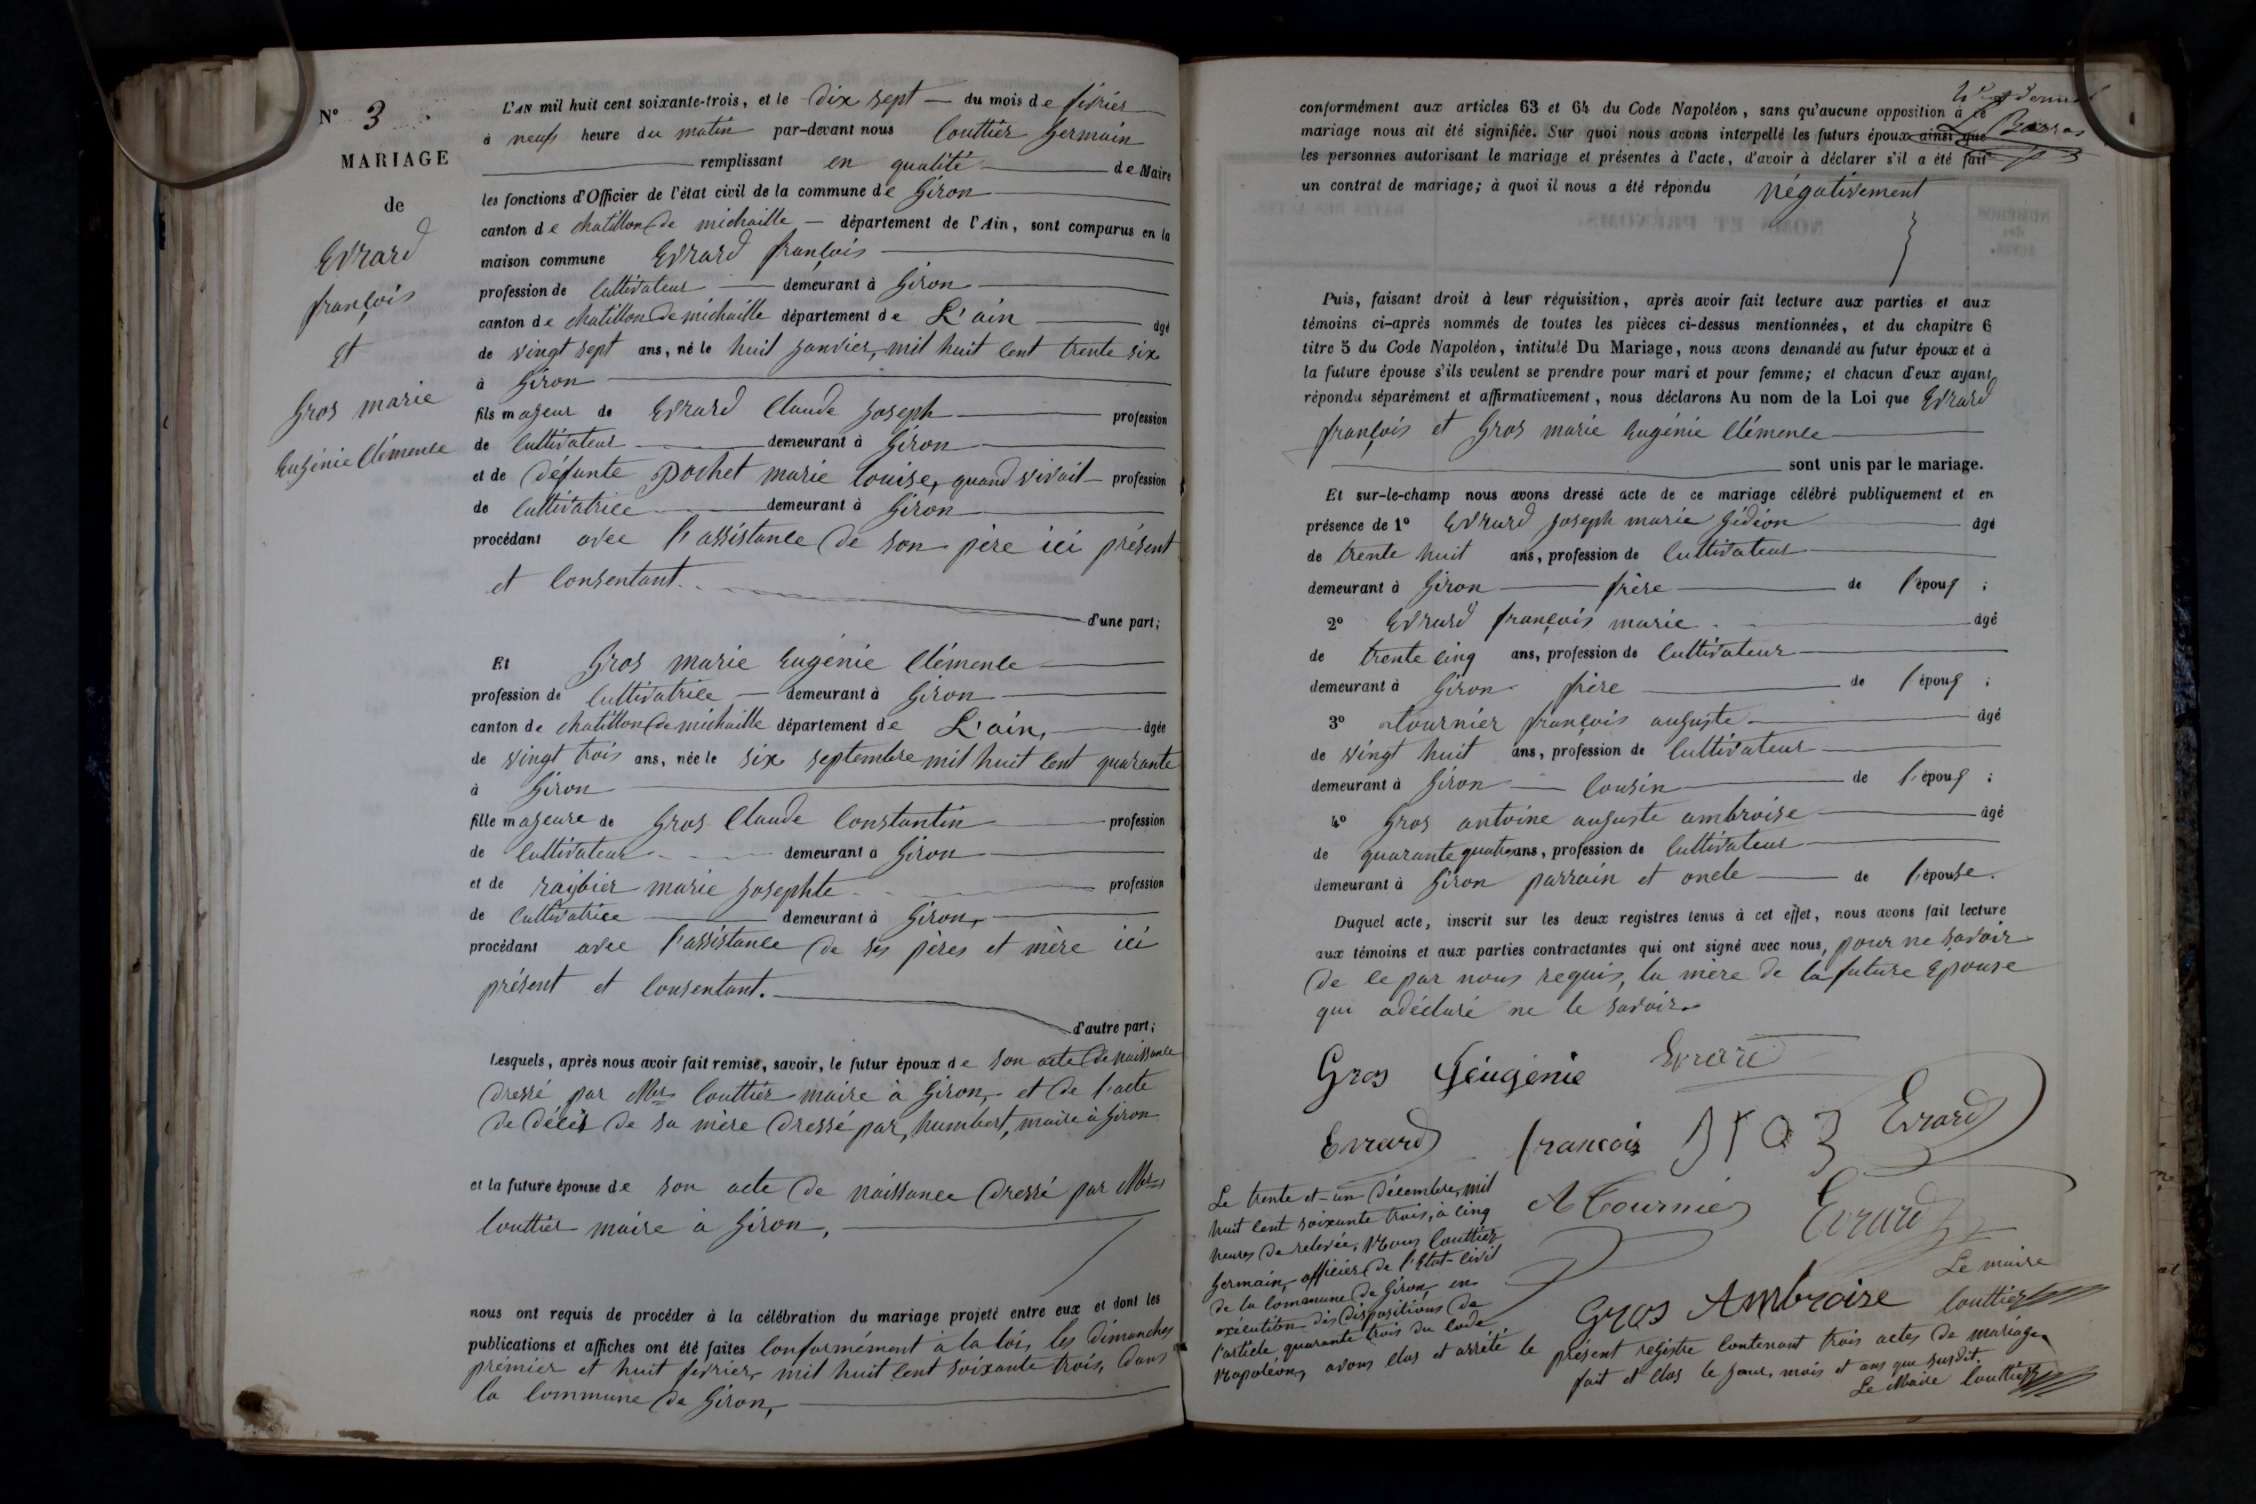 N° 3
MARIAGE
de
Evrard
françois
et
Gros marie
Eugénie Clémence
L'AN mil huit cent soixante-trois, et le dix sept du mois de février
à neufs heure du matin par-devant nous Couttier Germain
remplissant en qualité de Maire
les fonctions d'Officier de l'état civil de la commune de Giron
canton de chatillon de michaille département de l'Ain, sont comparus en la
maison commune Evrard françois
profession de Cultivateur demeurant à Giron
canton de chatillon de michaille département de L'ain âgé
de vingt sept ans, né le huit janvier, mil huit cent trente six
à Giron
fils majeur de Evrard Claude joseph profession
de Cultivateur demeurant à Giron
et de défunte Pochet marie louise, quand vivait profession
de Cultivatrice demeurant à Giron
procédant avec l'assistance de son père ici présent
et Consentant.
d'une part;
Et Gros marie Eugénie Clémence
profession de Cultivatrice demeurant à Giron
canton de chatillon de michaille département de L'ain, âgée
de vingt trois ans, née le six septembre mil huit cent quarante
à Giron
fille majeure de Gros Claude Constantin profession
de Cultivateur demeurant à Giron
et de raybier marie josephte profession
de Cultivatrice demeurant à Giron,
procédant avec l'assistance de ses pères et mère ici
présent et Consentant.
d'autre part;
Lesquels, après nous avoir fait remise, savoir, le futur époux de son acte de naissance
dressé par Mr Couttier maire à Giron, et de l'acte
de décès de sa mère dressé par, humbert, maire à Giron
et la future épouse de son acte de naissance dressé par Mr
Couttier maire à Giron,
nous ont requis de procéder à la célébration du mariage projeté entre eux et dont les
publications et affiches ont été faites Conformément à la loi, les dimanches
prémier et huit fevrier, mil huit cent soixante trois, dans
la Commune de Giron,
conformément aux articles 63 et 64 du Code Napoléon, sans qu'aucune opposition à ce
mariage nous ait été signifiée. Sur quoi nous avons interpellé les futurs époux ainsi que
les personnes autorisant le mariage et présentes à l'acte, d'avoir à déclarer s'il a été fait
un contrat de mariage; à quoi il nous a été répondu négativement
Puis, faisant droit à leur réquisition, après avoir fait lecture aux parties et aux
témoins ci-après nommés de toutes les pièces ci-dessus mentionnées, et du chapitre 6
titre 5 du Code Napoléon, intitulé Du Mariage, nous avons demandé au futur époux et à
la future épouse s'ils veulent se prendre pour mari et pour femme; et chacun d'eux ayant
répondu séparément et affirmativement, nous déclarons Au nom de la Loi que Evrard
françois et Gros marie Eugénie Clémence
sont unis par le mariage.
Et sur-le-champ nous avons dressé acte de ce mariage célébré publiquement et en
présence de 1° Evrard joseph marie Gédéon âgé
de trente huit ans, profession de Cultivateur
demeurant à Giron frère de l'époux ;
2° Evrard françois marie âgé
de trente cinq ans, profession de Cultivateur
demeurant à Giron frère de l'époux ;
3° tournier françois auguste âgé
de vingt huit ans, profession de Cultivateur
demeurant à Giron Cousin de l'époux ;
4° Gros antoine auguste ambroise âgé
de quarante quatre ans, profession de Cultivateur
demeurant à Giron parrain et oncle de l'épouse.
Duquel acte, inscrit sur les deux registres tenus à cet effet, nous avons fait lecture
aux témoins et aux parties contractantes qui ont signé avec nous, pour ne savoir
de ce par nous requis, la mère de la future Epouse
qui a déclaré ne le savoir.
Gros Eugénie Evrard
Evrard francois Evrard
A Tournier Evrard
Le maire
Gros Ambroise Couttier
Le trente et un Décembre, mil
huit cent soixante trois, à cinq
heures de relevée, Nous Couttier
Germain, officier de l'Etat-Civil
de la Commune de Giron, en
exécution des dispositions de
l'article quarante trois du Code
Napoléon, avons Clos et arrêté le présent registre Contenant trois actes de mariage
fait et clos le jour, mois et ans que susdit.
Le Maire Couttier